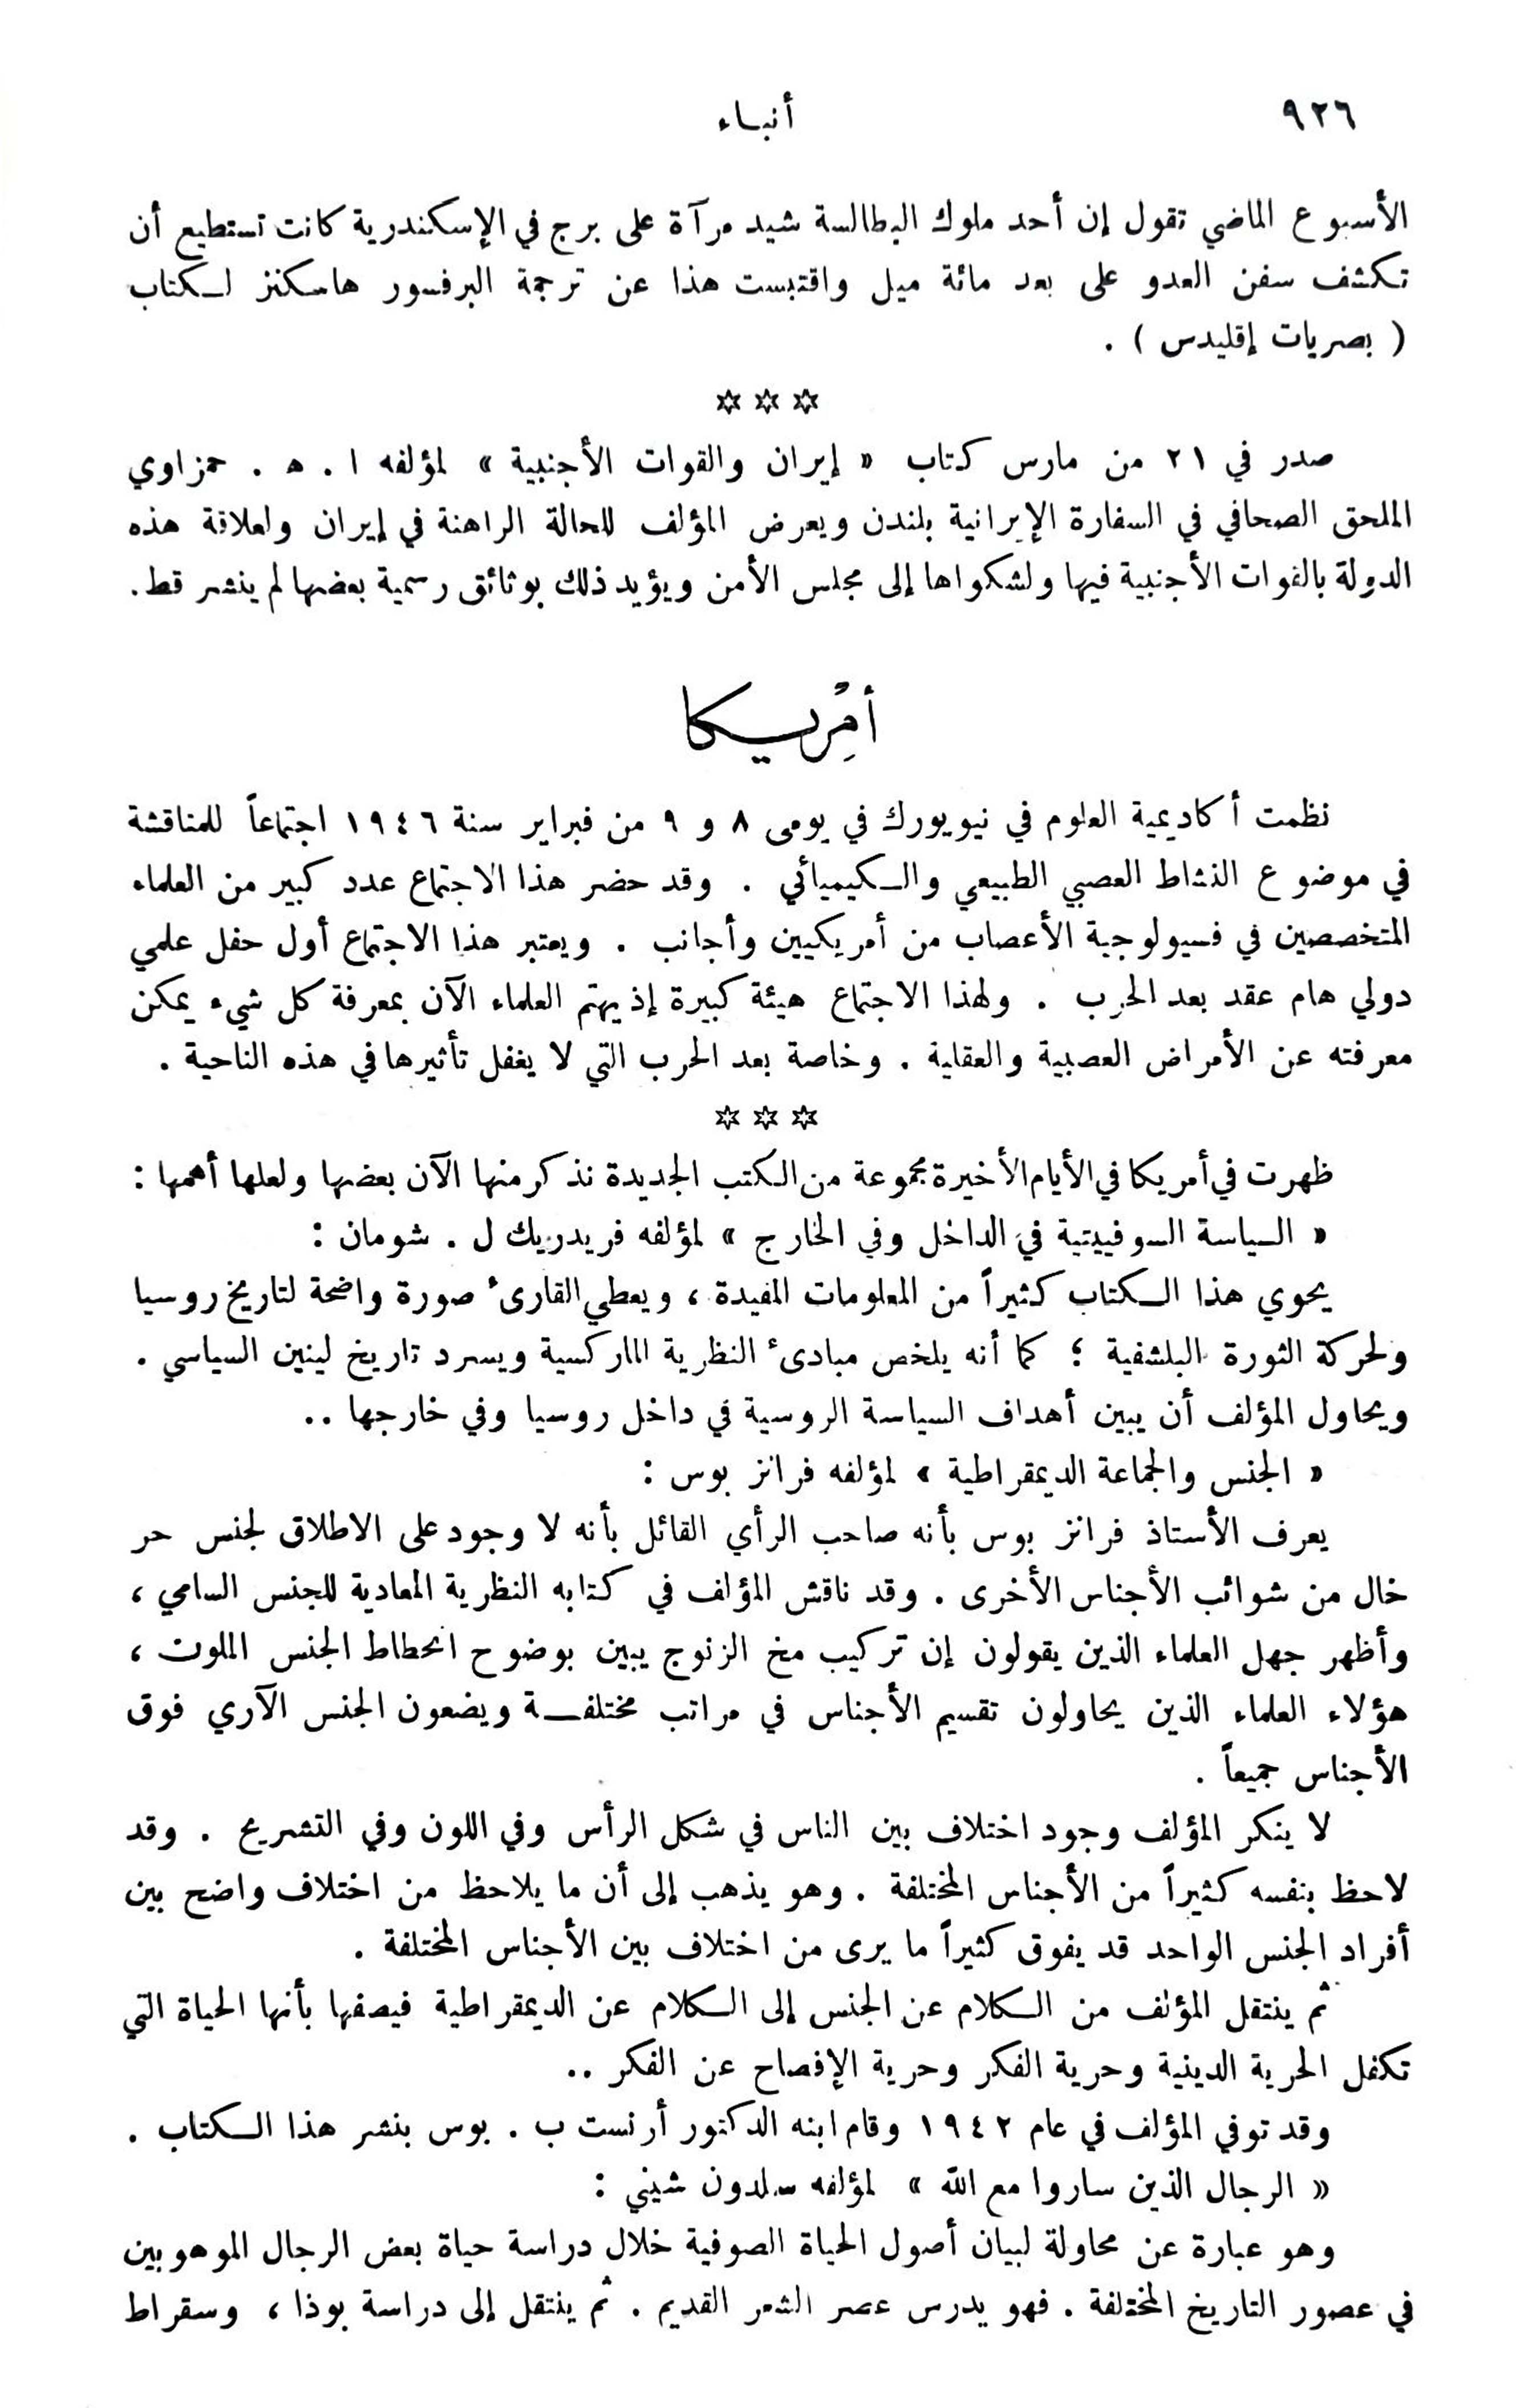 ٩٢٦
أنباء
الأسبوع الماضي تقول إن أحد ملوك البطالسة شيد مرآة على برج في الإسكندرية كانت تستطيع أن
تكشف سفن العدو على بعد مائة ميل واقتبست هذا عن ترجمة البرفسور هاسكنز لكتاب
( بصريات إقليدس ) .
☆ ☆ ☆
صدر في ٢١ من مارس كتاب « إيران والقوات الأجنبية » لمؤلفه ا . ه . حمزاوي
الملحق الصحافي في السفارة الإيرانية بلندن ويعرض المؤلف للحالة الراهنة في إيران ولعلاقة هذه
الدولة بالقوات الأجنبية فيها ولشكواها إلى مجلس الأمن ويؤيد ذلك بوثائق رسمية بعضها لم ينشر قط .
أمْرِيكا
نظمت أكاديمية العلوم في نيويورك في يومى ٨ و ٩ من فبراير سنة ١٩٤٦ اجتماعاً للمناقشة
في موضوع النشاط العصبي الطبيعي والكيميائي . وقد حضر هذا الاجتماع عدد كبير من العلماء
المتخصصين في فسيولوجية الأعصاب من أمريكيين وأجانب . ويعتبر هذا الاجتماع أول حفل علمي
دولي هام عقد بعد الحرب . ولهذا الاجتماع هيئة كبيرة إذ يهتم العلماء الآن بمعرفة كل شيء يمكن
معرفته عن الأمراض العصبية والعقلية . وخاصة بعد الحرب التي لا يغفل تأثيرها في هذه الناحية .
☆ ☆ ☆
ظهرت في أمريكا في الأيام الأخيرة مجموعة من الكتب الجديدة نذكر منها الآن بعضها ولعلها أهمها :
« السياسة السوفييتية في الداخل وفي الخارج » لمؤلفه فريدريك ل . شومان :
يحوي هذا الكتاب كثيراً من المعلومات المفيدة ، ويعطي القارىء صورة واضحة لتاريخ روسيا
ولحركة الثورة البلشفية ؛ كما أنه يلخص مبادىء النظرية الماركسية ويسرد تاريخ لينين السياسي .
ويحاول المؤلف أن يبين أهداف السياسة الروسية في داخل روسيا وفي خارجها ..
« الجنس والجماعة الديمقراطية » لمؤلفه فرانز بوس :
يعرف الأستاذ فرانز بوس بأنه صاحب الرأي القائل بأنه لا وجود على الاطلاق لجنس حر
خال من شوائب الأجناس الأخرى . وقد ناقش المؤلف في كتابه النظرية المعادية للجنس السامي ،
وأظهر جهل العلماء الذين يقولون إن تركيب مخ الزنوج يبين بوضوح انحطاط الجنس الملون ،
هؤلاء العلماء الذين يحاولون تقسيم الأجناس في مراتب مختلفة ويضعون الجنس الآري فوق
الأجناس جميعاً .
لا ينكر المؤلف وجود اختلاف بين الناس في شكل الرأس وفي اللون وفي التشريح . وقد
لاحظ بنفسه كثيراً من الأجناس المختلفة . وهو يذهب إلى أن ما يلاحظ من اختلاف واضح بين
أفراد الجنس الواحد قد يفوق كثيراً ما يرى من اختلاف بين الأجناس المختلفة .
ثم ينتقل المؤلف من الكلام عن الجنس إلى الكلام عن الديمقراطية فيصفها بأنها الحياة التي
تكفل الحرية الدينية وحرية الفكر وحرية الإفصاح عن الفكر ..
وقد توفي المؤلف في عام ١٩٤٢ وقام ابنه الدكتور أرنست ب . بوس بنشر هذا الكتاب .
« الرجال الذين ساروا مع الله » لمؤلفه سلدون شيني :
وهو عبارة عن محاولة لبيان أصول الحياة الصوفية خلال دراسة حياة بعض الرجال الموهوبين
في عصور التاريخ المختلفة . فهو يدرس عصر الشعر القديم . ثم ينتقل إلى دراسة بوذا ، وسقراط